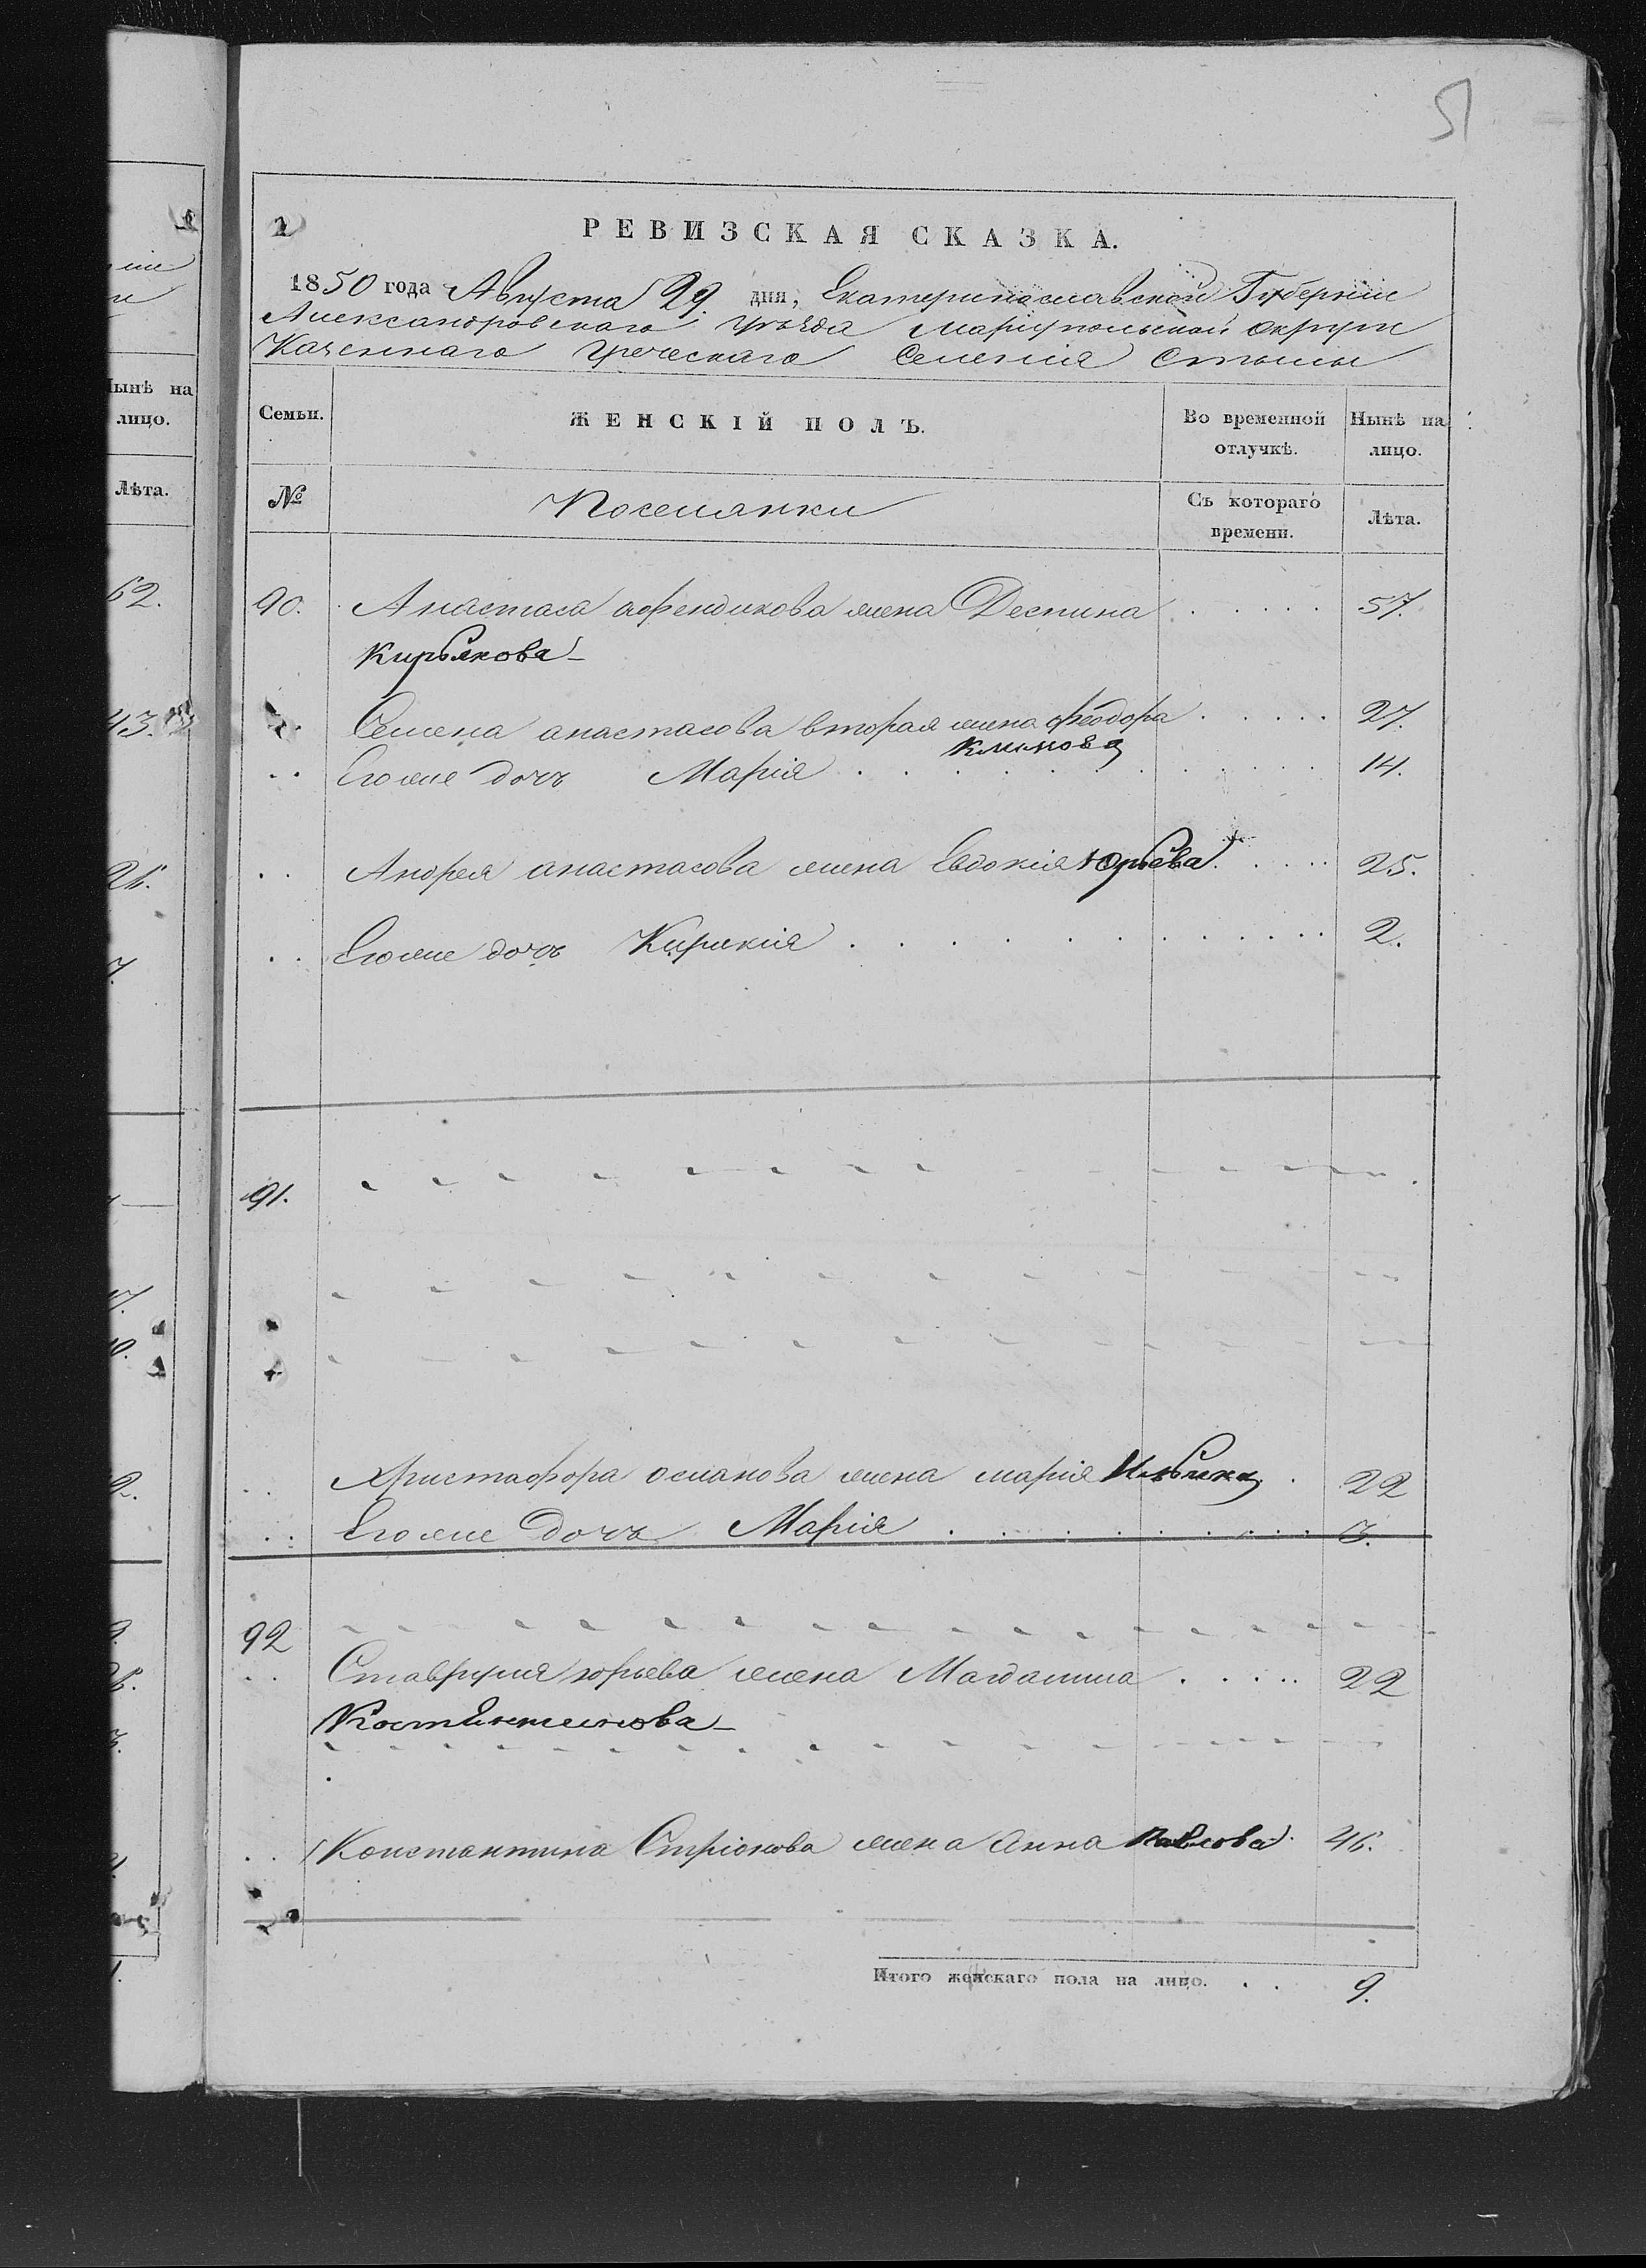 51
РЕВИЗСКАЯ СКАЗКА.
1850 года Августа 29. дня, Екатеринославской Губерніи
Александровскаго уѣзда Маріупольской округи
Казеннаго Греческаго Селенія Стылы
Нынѣ на
лицо.
Лѣта.
Семьи.
ЖЕНСКІЙ ПОЛЪ.
Во временной
отлучкѣ.
Нынѣ на
лицо.
№
Поселянки
Съ котораго
времени.
Лѣта.
62.
90. Анастаса афендикова жена Деспина . . . . . 57.
Кирьякова
43.
Семена анастасова вторая жена феодора . . . . . 27.
Климова
Его же дочь Марія . . . . 14.
Андрея анастасова жена Евдокія Юрьева . . . . 25.
Его же дочь Кирикія . . . . 2.
91.
Христафора османова жена марія . 22
Его же Дочь Марія . . . . 3.
92
Ставруля юрьева жена Магдалина . . . . 22
Константинова
Константина Стріонова жена Анна Павлова 46.
Итого женскаго пола на лицо. . . 9.